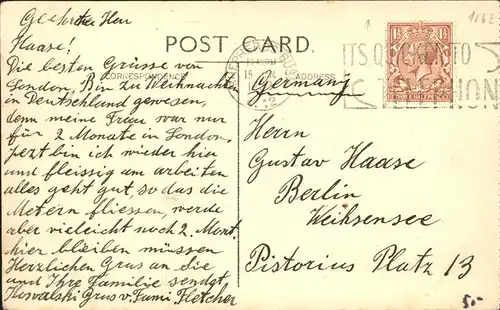 Geehrter Herr
Haase!
Die besten Grüsse von
London. Bin zu Weihnachten
in Deutschland gewesen,
denn meine Frau war nur
für 2 Monate in London,
jezt bin ich wieder hier
und fleissig am arbeiten
alles geht gut, so das die
Metern fliessen, werde
aber vielleicht noch 2. Mont.
hier bleiben müssen
Herzlichen Grus an Sie
und Ihre Familie sendet
Kowalski Grus v. Fami Fletcher
POST CARD.
CORRESPONDENCE
ADDRESS
Germany
Herrn
Gustav Haase
Berlin
Weihsensee
Pistorius Platz 13
IT'S QUICKER TO
TELEPHONE
1½
5.-